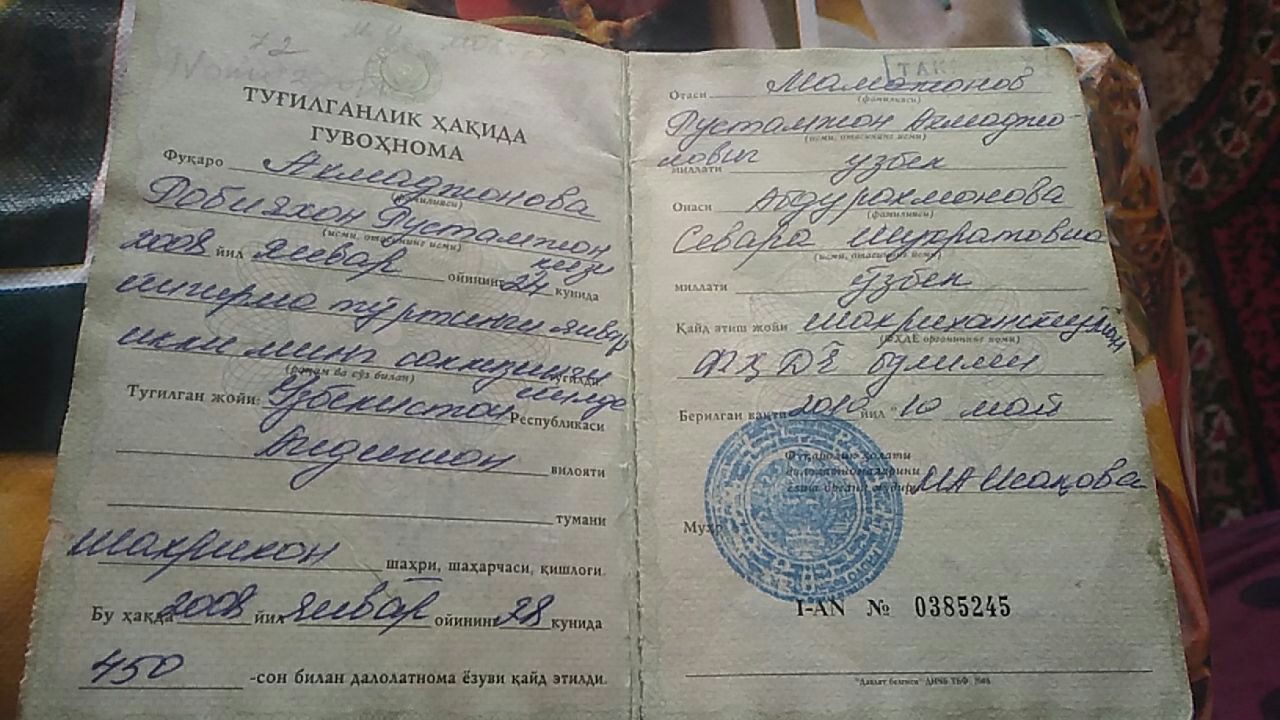 72
ТУҒИЛГАНЛИК ҲАҚИДА
ГУВОҲНОМА
Фуқаро Акмаджонова
(фамилияси)
Робияхон Рустамжон
(исми, отасининг исми) қизи
2008 йил январ ойининг 24 кунида
йигирма тўртинчи январ
икки минг саккизинчи
(рақам ва сўз билан) туғилди йилда
Туғилган жойи: Ўзбекистон Республикаси
Андижон вилояти
тумани
Шахрихон шаҳри, шаҳарчаси, қишлоғи.
Бу ҳақда 2008 йил январ ойининг 28 кунида
450 -сон билан далолатнома ёзуви қайд этилди.
ТАК
Отаси Маматжонов
(фамилияси)
Рустамжон Акмаджо-
(исми, отасининг исми)
нович
миллати узбек
Онаси Абдурахмонова
(фамилияси)
Севара Шухратовна
(исми, отасининг исми)
миллати ўзбек
Қайд этиш жойи Шахрихан
(ФҲДЁ органининг номи)
ФҲДЁ булими
Берилган вақти 2010 йил "10 май
Фуқаролик ҳолати
далолатномаларини
ёзиш органи мудири МА Исақова
Муҳр
I-AN № 0385245
"Давлат белгиси" ДИЧБ ТБФ.